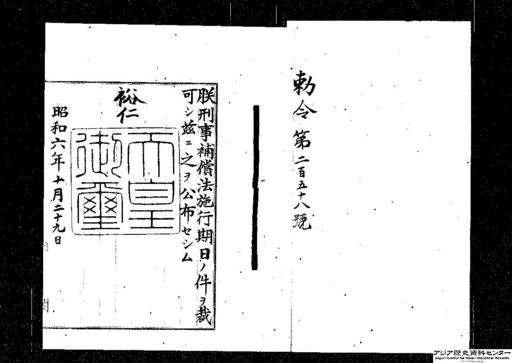 勅令第二百五十八號
朕刑事補償法施行期日ノ件ヲ裁
可シ茲ニ之ヲ公布セシム
裕仁
天皇
御璽
昭和六年十月二十九日
アジア歴史資料センター
Japan Center for Asian Historical Records